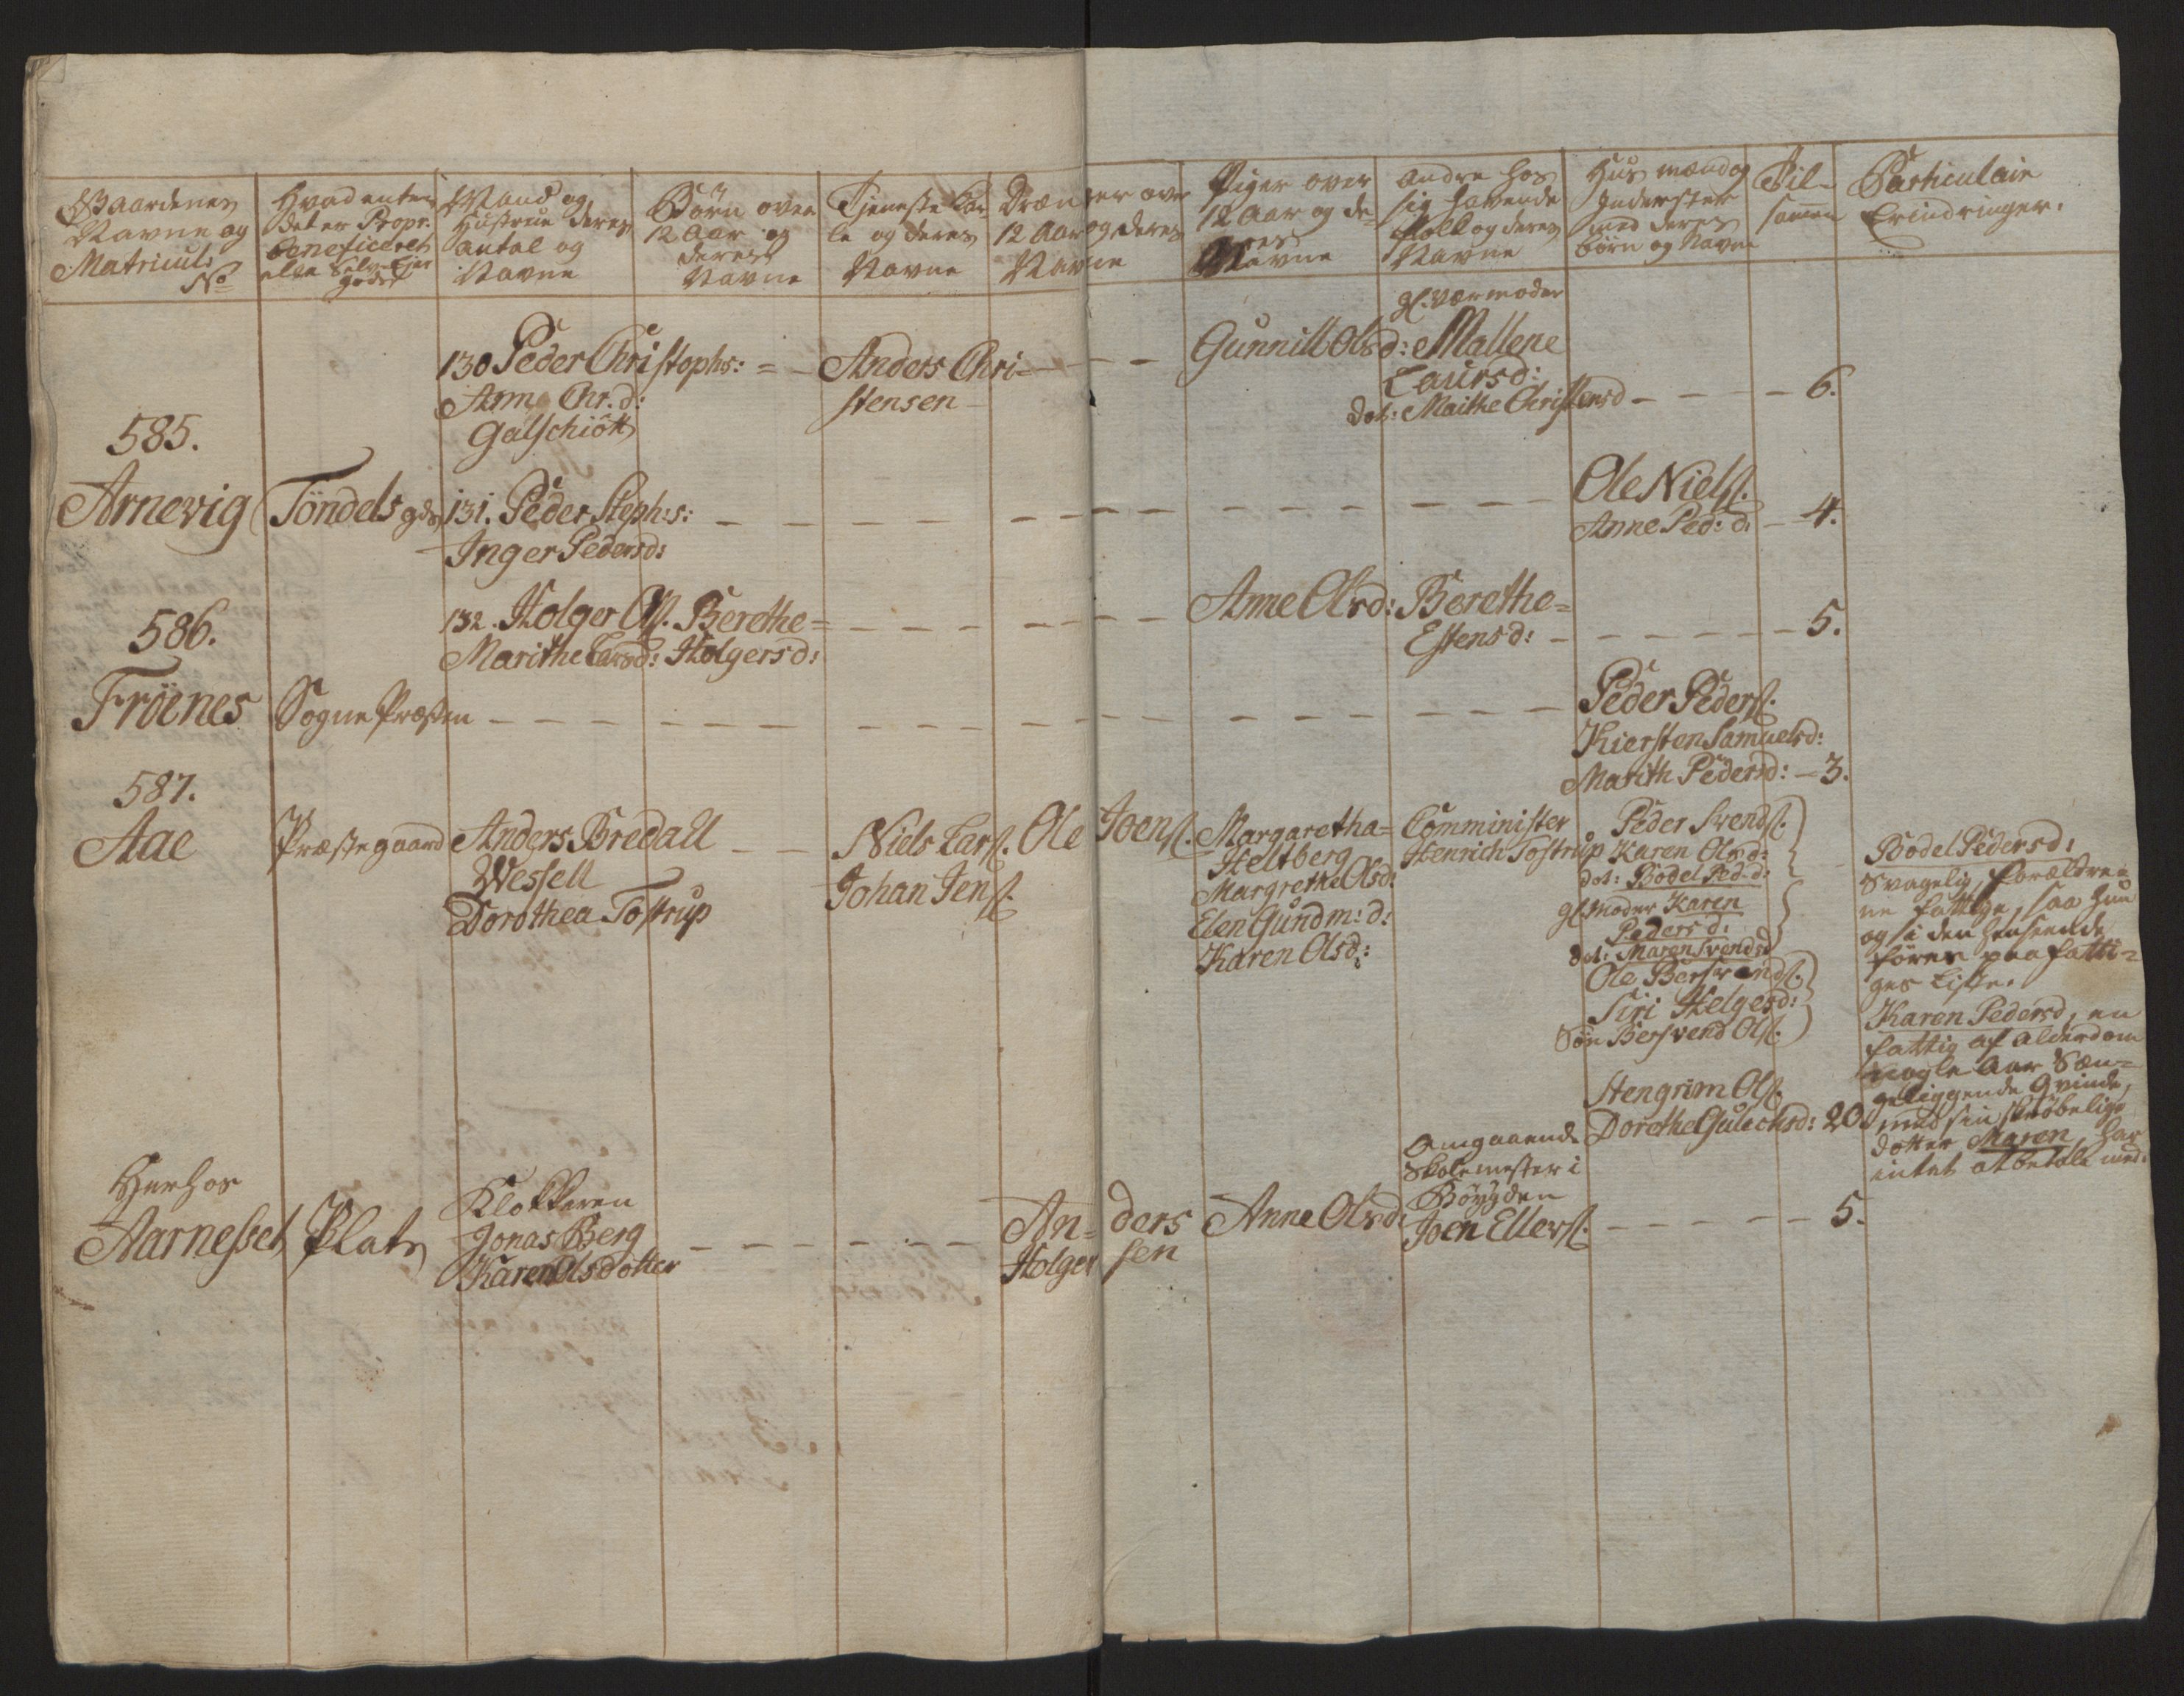 Gaardenes
Navne og
Matricul:
No
Hvad enten
det er Propr.
beneficeret
eller Selv-Ejer
gods
Mand og
Hustrue deres
antal og
Navne
Börn over
12 Aar og
deres
Navne
Tjeneste Kar
le og deres
Navne
Drænger over
12 Aar og deres
Navne
Piger over
12 Aar og de=
res
Navne
andre hos
sig havende
Folk og deres
Navne
Huus mænd og
Inderster
med deres
börn og Navne
Til-
sammen
Particulair
Erindringer.
130 Peder Christophs: = -
Anna Chr. d:
Galschiött
Anders Chri-
stensen
Gunnill Olsd:
gl. værmoder
Mallene
Laursd:
dot: Maithe Christensd - - - 6.
585.
Arnevig
Töndels gds
131. Peder Steph:s:
Inger Pedersd:
Ole Nielss.
Anne Ped: d: - 4.
586.
Fröenes
132. Holger Ols.
Marithe Larsd:
Berethe=
Holgersd:
Anne Olsd:
Berethe=
Estensd: - - - - 5.
Sogne Præsten
Peder Peders.
Kiersten Samuelsd:
Marith Pedersd: - 3.
587.
Aae
Præstegaard
Anders Bredall
Wessell
Dorothea Tostrup
Niels Lars.
Johan Jens.
Ole Joens.
Margaretha=
Heltberg
Margrethe Olsd:
Elen Gundm: d:
Karen Olsd:
Comminister
Henrich Tostrup
Peder Svends.
Karen Olsd:
dot: Bodel Ped. d:
gl. Moder Karen
Pedersd:
dot: Maren Svendsd
Ole Bersvends.
Siri Helgesd:
Sön Bersvend Ols.
Stengrim Ols.
Dorethe Gulachsd: 20
Bodel Pedersd:
Svagelig, forældre=
ne fattige, saa hun
og i den henseende
föres paa fatti=
ges Liste.
Karen Pedersd, en
fattig af alderdom
nogle Aar Sæn=
geliggende Qvinde,
med sin skröbelige
dotter Maren, har
intet at betale med.
Herhos
Aarnesset
Plads
Klokkeren
Jonas Berg
Karen Olsdotter
An= ders
Holger sen
Anne Olsd:
Omgaaende
Skolemester i
Böygden
Joen Ellers. - - - - 5.